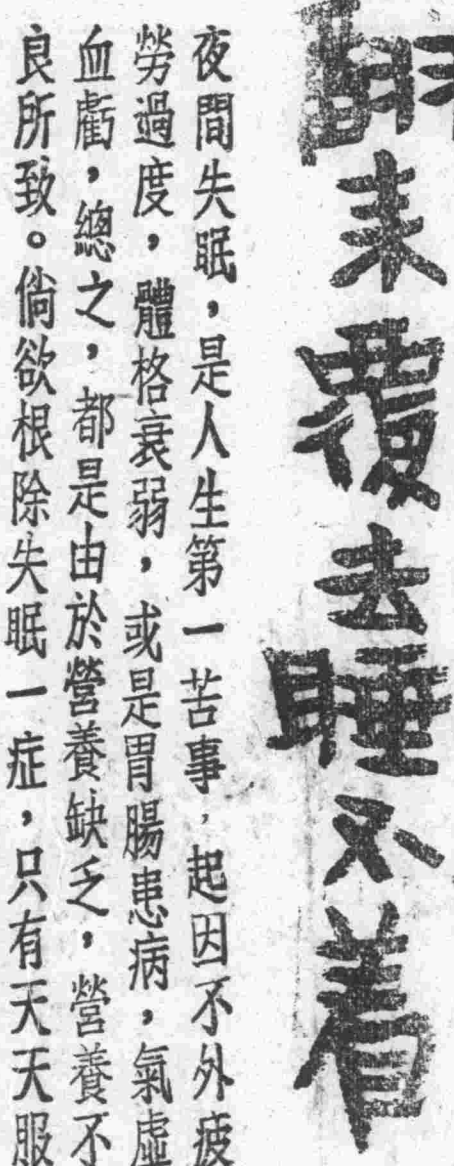 翻来覆去睡不着
夜間失眠，是人生第一苦事，起因不外疲
勞過度，體格衰弱，或是胃腸患病，氣虛
血虧，總之，都是由於營養缺乏，營養不
良所致。倘欲根除失眠一症，只有天天服